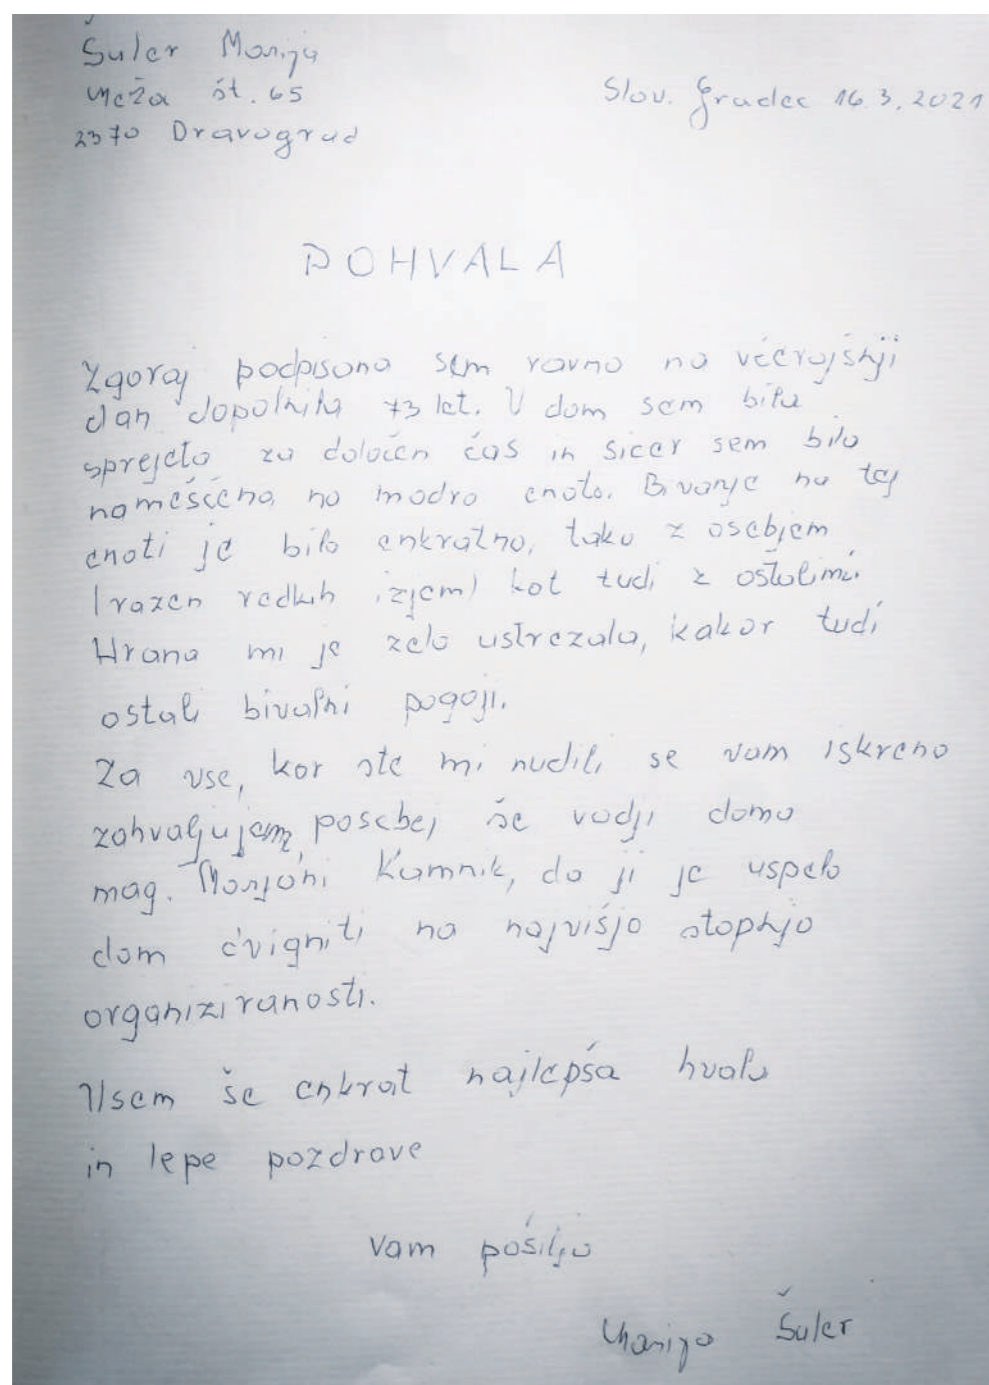 Šuler Marija
Meža št. 65
2370 Dravograd
Slov. Gradec 16.3.2021
POHVALA
Zgoraj podpisana sem ravno na včerajšnji
dan dopolnila 73 let. V dom sem bila
sprejeta za določen čas in sicer sem bila
nameščena na modro enoto. Bivanje na tej
enoti je bilo enkratno, tako z osebjem
(razen redkih izjem) kot tudi z ostalimi.
Hrana mi je zelo ustrezala, kakor tudi
ostali bivalni pogoji.
Za vse, kar ste mi nudili se vam iskreno
zahvaljujem, posebej še vodji doma
mag. Marjani Kamnik, da ji je uspelo
dom dvigniti na najvišjo stopnjo
organiziranosti.
Vsem še enkrat najlepša hvala
in lepe pozdrave
vam pošilja
Marija Šuler